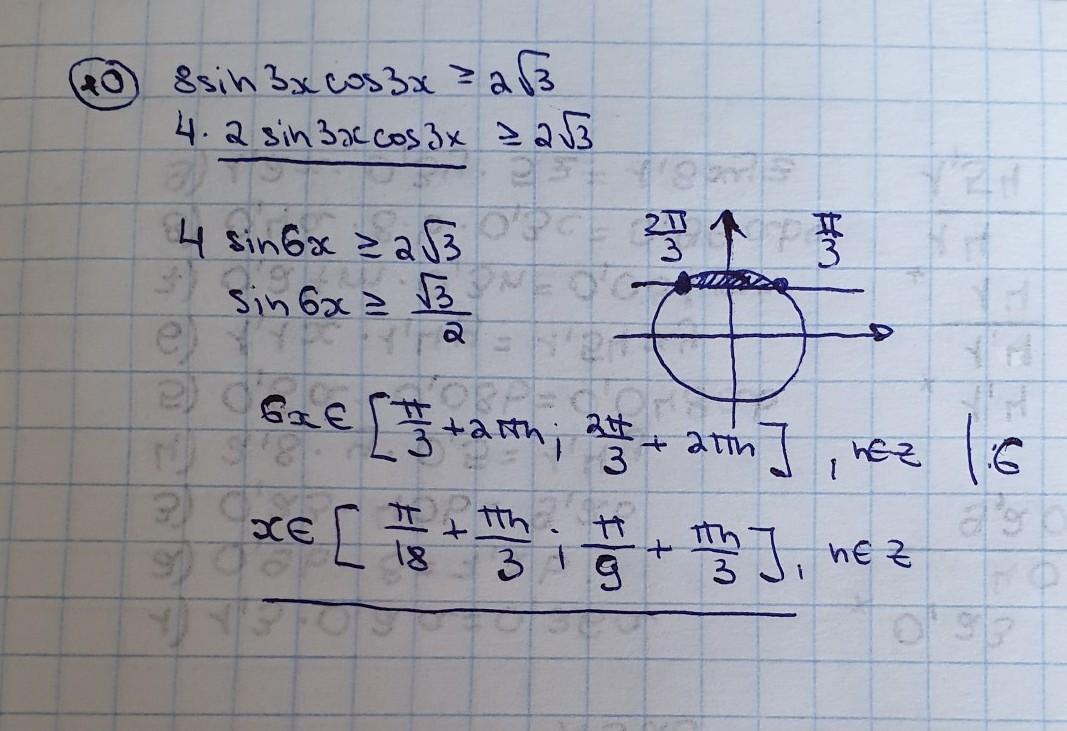 10 8sin3xcos3x ≥ 2√3
4·2sin3xcos3x ≥ 2√3
4 sin6x ≥ 2√3
2π/3 π/3
sin6x ≥ √3/2
6x∈[π/3+2πn; 2π/3+2πn], n∈Z |:6
x∈[π/18+πn/3; π/9+πn/3], n∈Z